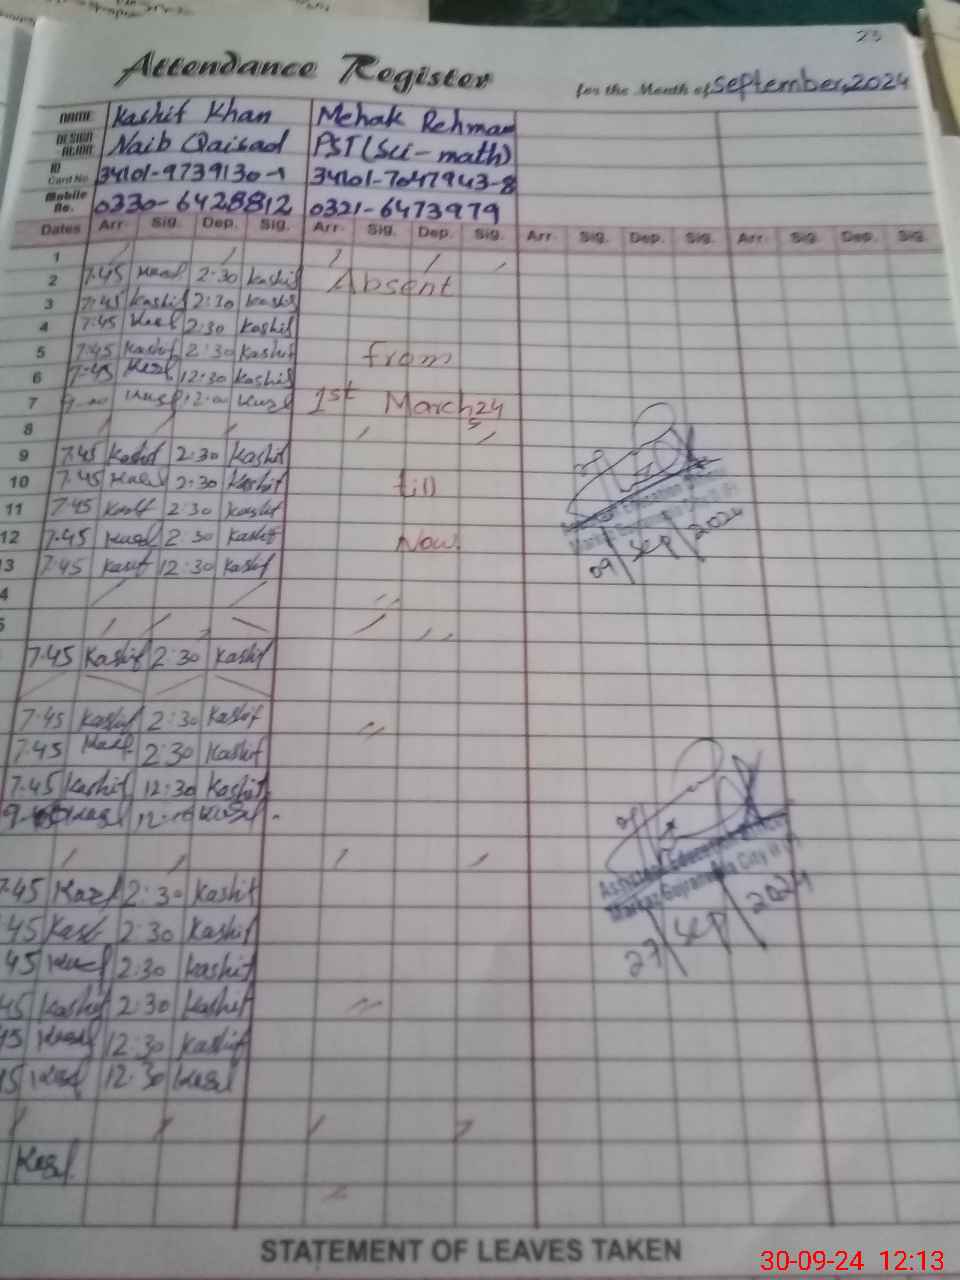 23
Attendance Register for the Month of September, 2024
NAME Kashif Khan Mehak Rehman
DESIGN ATION Naib Qaisad PST (Sci-math)
ID Card No. 34101-9739130-1 34101-7047943-8
Mobile No. 0330-6428812 0321-6473979
Dates Arr. Sig. Dep. Sig. Arr. Sig. Dep. Sig. Arr. Sig. Dep. Sig. Arr. Sig. Dep. Sig.
1
2 7.45 2:30 Kashif Absent
3 7:45 Kashif 2:30 Kashif
4 7:45 2:30 Kashif
5 7:45 Kashif 2:30 Kashif from
6 7:45 12:30 Kashif
7 12:00 1st March 24
8
9 7.45 Kashif 2:30 Kashif
10 7.45 2:30 Kashif till
11 7:45 Kashif 2:30 Kashif
12 7.45 2:30 Kashif Now.
13 7:45 Kashif 12:30 Kashif
4
5
7.45 Kashif 2:30 Kashif
7:45 Kashif 2:30 Kashif
7.45 2:30 Kashif
7.45 Kashif 12:30 Kashif
Assistant Education Officer
09 Sep 2024
7.45 2:30 Kashif
45 2:30 Kashif
45 2:30 Kashif
45 Kashif 2:30 Kashif
45 12:30 Kashif
45 12:30
Assistant Education Officer
Markaz Gujranwala City II
27 Sep 2024
STATEMENT OF LEAVES TAKEN
30-09-24 12:13